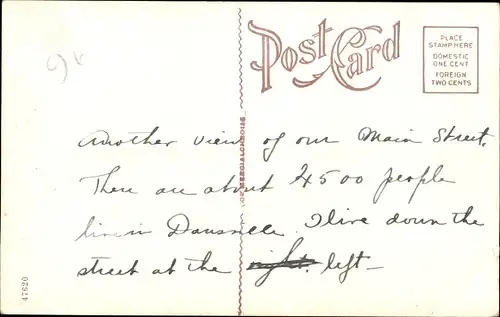 Post Card
PLACE
STAMP HERE
DOMESTIC
ONE CENT
FOREIGN
TWO CENTS
Another view of our Main Street.
There are about 4500 people
live in Dansville. I live down the
street at the right. left—
47620